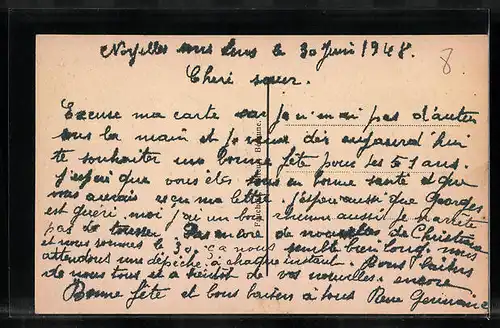 Noyelles sous Lens le 30 Juin 1948.
8
Cheri sœur.
Excuse ma carte car je n'ai pas d'autre
sous la main et je veux dès aujourd'hui
te souhaiter une bonne fête pour tes 61 ans.
J'espère que vous êtes tous en bonne santé et que
vous avez reçu ma lettre. J'espère aussi que Georges
est guéri moi j'ai un bon rhume aussi je n'arrête
pas de tousser. encore de nouvelles de Christiane
et nous sommes le 30 ça nous semble bien long. nous
attendons une dépêche à chaque instant. Bons baisers
de nous tous et à bientôt de vos nouvelles encore
Bonne fête et bons baisers à tous Germaine